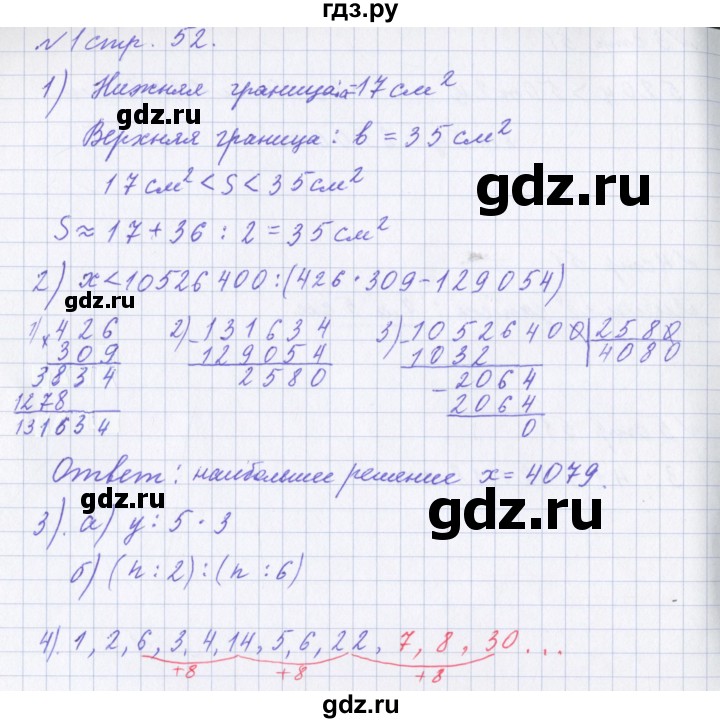 гдз.ру
№ 1 стр. 52.
1) Нижняя граница: а = 17 см²
Верхняя граница: в = 35 см²
17 см² < S < 35 см²
S ≈ 17 + 36 : 2 = 35 см²
2) x < 10526400 : (426 · 309 − 129054)
1) × 426
309
3834
1278
131634
2) − 131634
129054
2580
3) − 10526400 | 2580
1032 | 4080
− 2064
2064
0
Ответ: наибольшее решение x = 4079.
3). а) y : 5 · 3
б) (n : 2) : (n : 6)
4). 1, 2, 6, 3, 4, 14, 5, 6, 22, 7, 8, 30 ...
+8 +8 +8
gdz.ru
gdz.ru
gdz.ru
gdz.ru
gdz.ru
gdz.ru
gdz.ru
gdz.ru